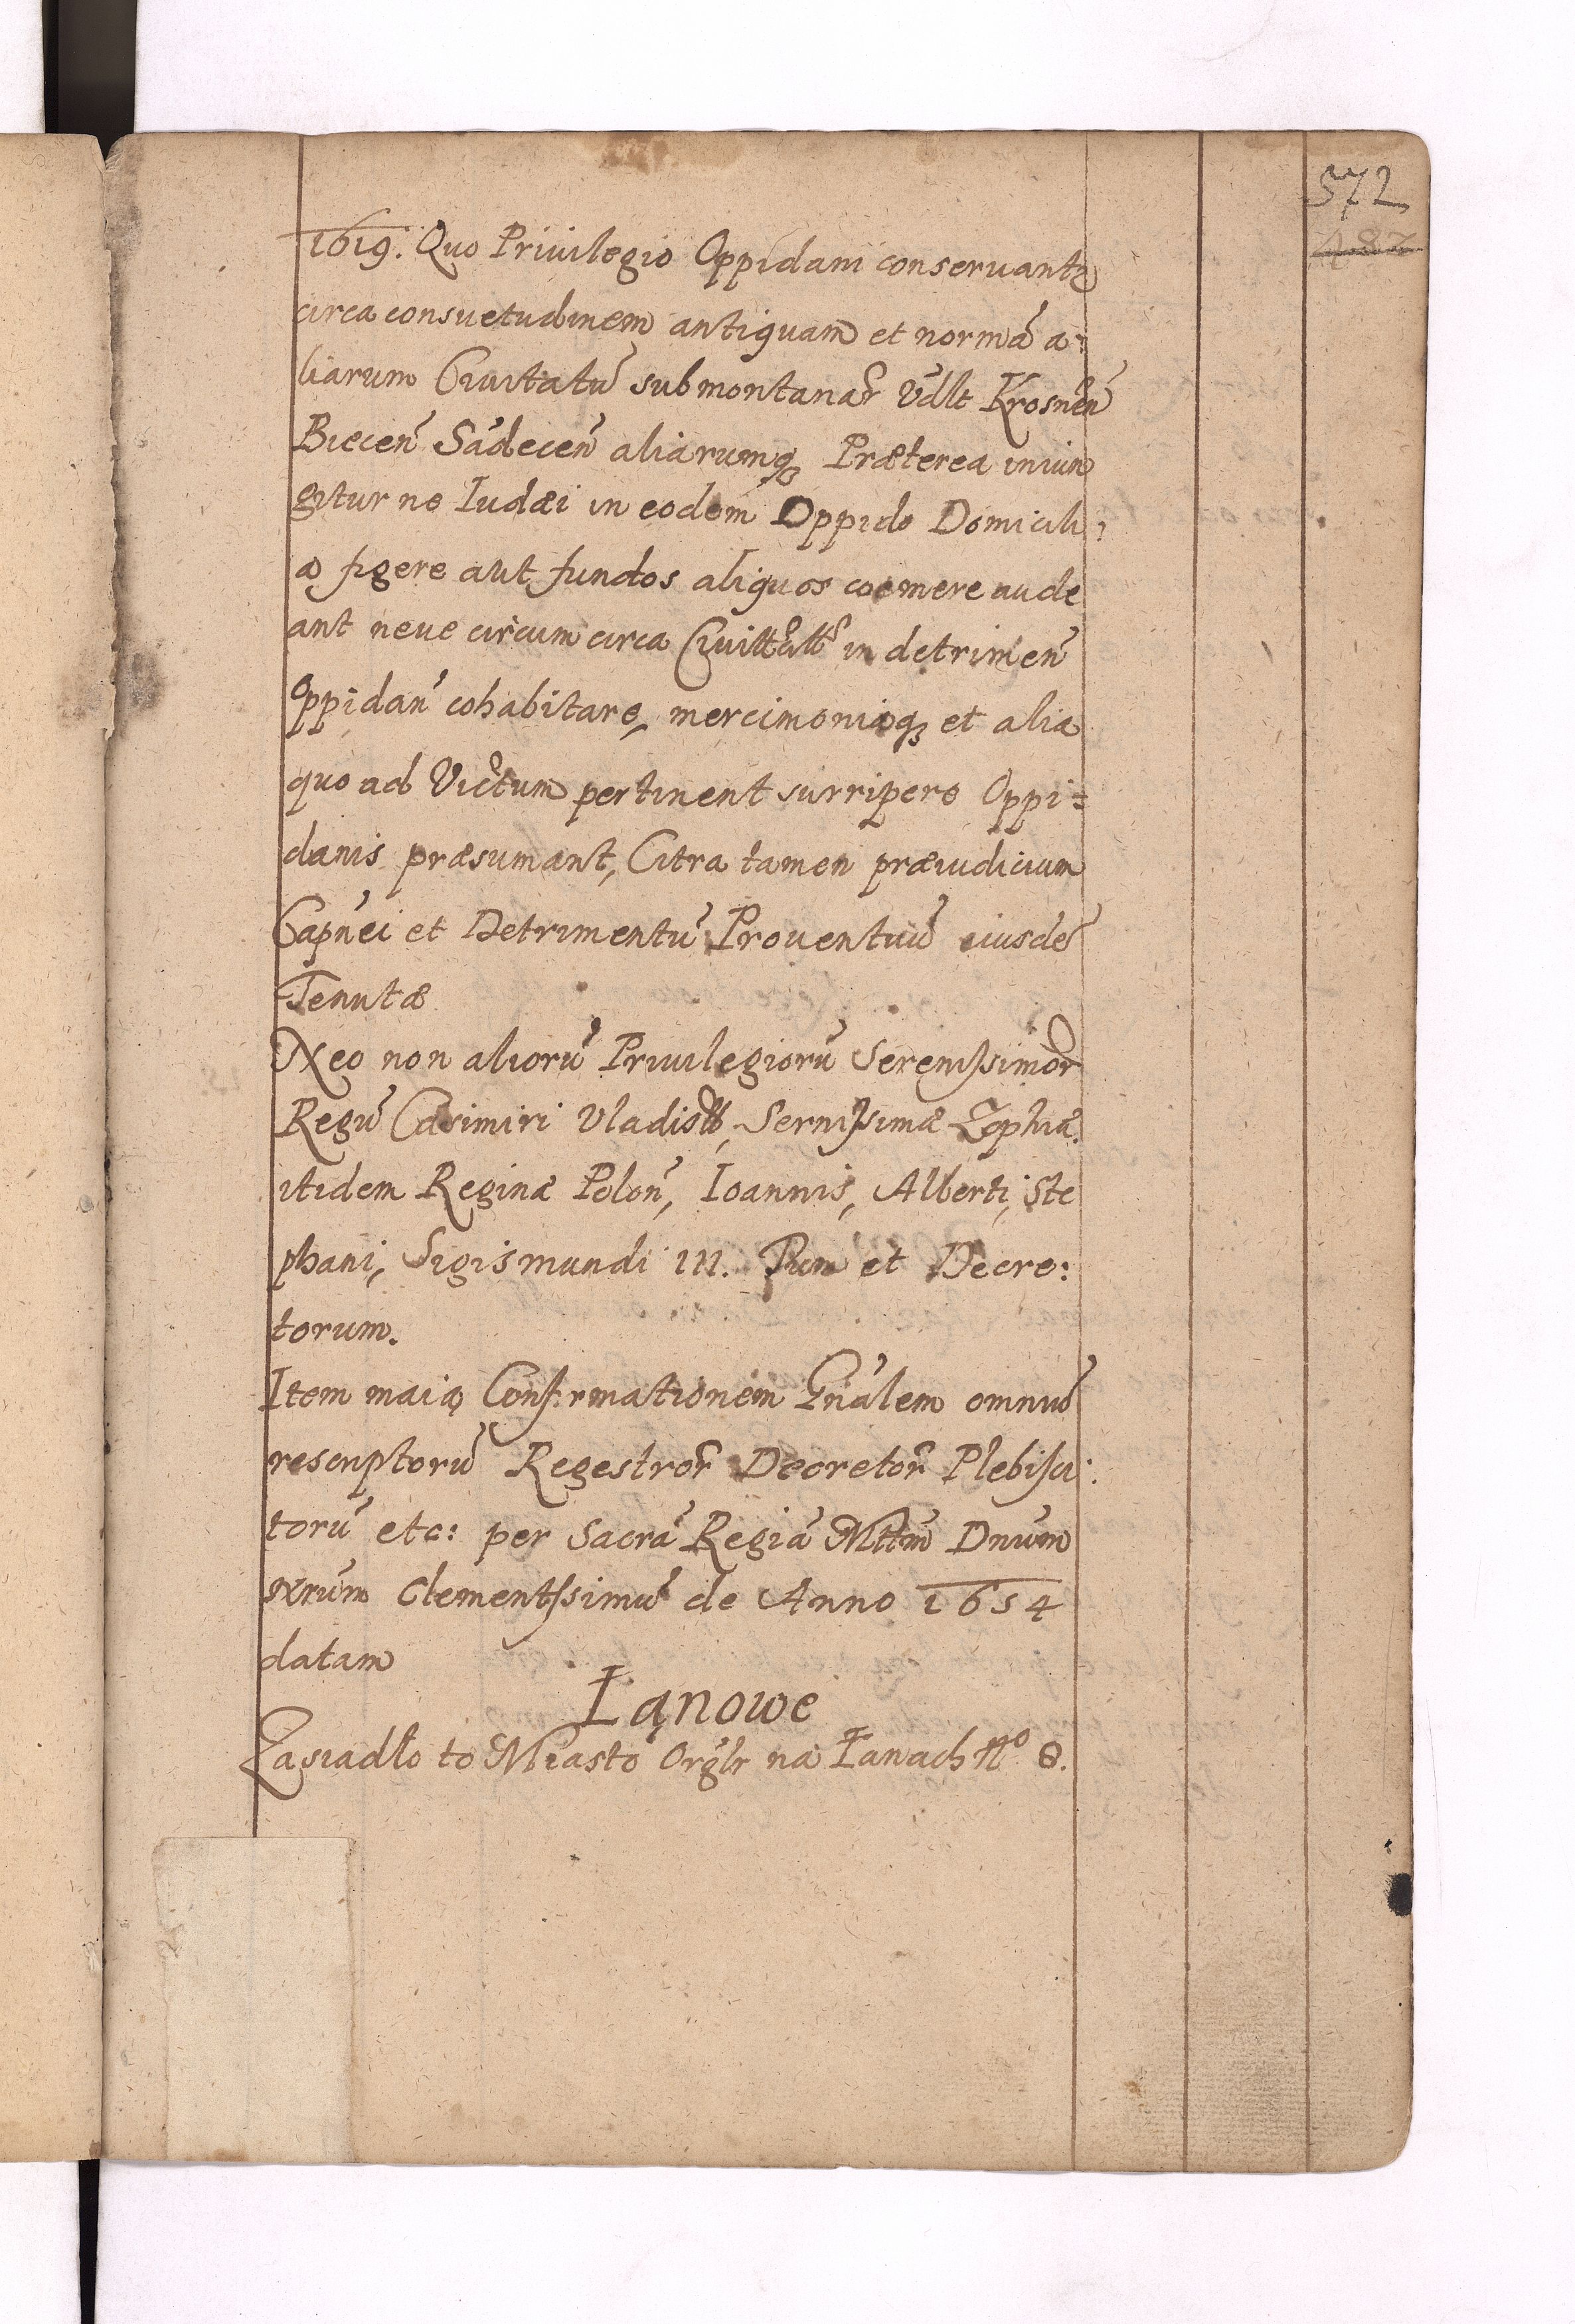 572
487
1619. Quo Priuilegio Oppidani conseruantr
circa consuetudinem antiquam et normã a=
liarum Ciuitatũ submontanar Vdlt Krosneñ
Bieceñ Sãdeceñ aliarumq₃ Præterea iniun
gitur ne Iudæi in eodem Oppido Domicili=
a figere aut fundos aliquos coemere aude
ant neue circum circa Ciuittatt in detrimeñ
Oppidañ cohabitare, mercimoniaq₃ et alia
quo ad Victum pertinent surripere Oppi=
danis præsumant, Citra tamen præiudicium
Capñei et Detrimentũ Prouentuũ eiusdẽ
Tenutæ
Nec non aliorũ Priuilegiorũ Serenissimor
Regũ Casimiri Vladisll, Sernissimæ Zophiæ
itidem Reginæ Poloñ, Ioannis, Alberti, Ste
phani, Sigismundi III. Pum et Decre:
torum.
Item maią Confirmationem Gnãlem omniũ
rescriptorũ Regestror Decretor Plebisci:
torũ etc: per Sacrã Regiã Mttm Dnum
nrum Clementissimũ de Anno 1654
datam
Łąnowe
Zasiadło to Miasto Orglr na Łanach No 8.